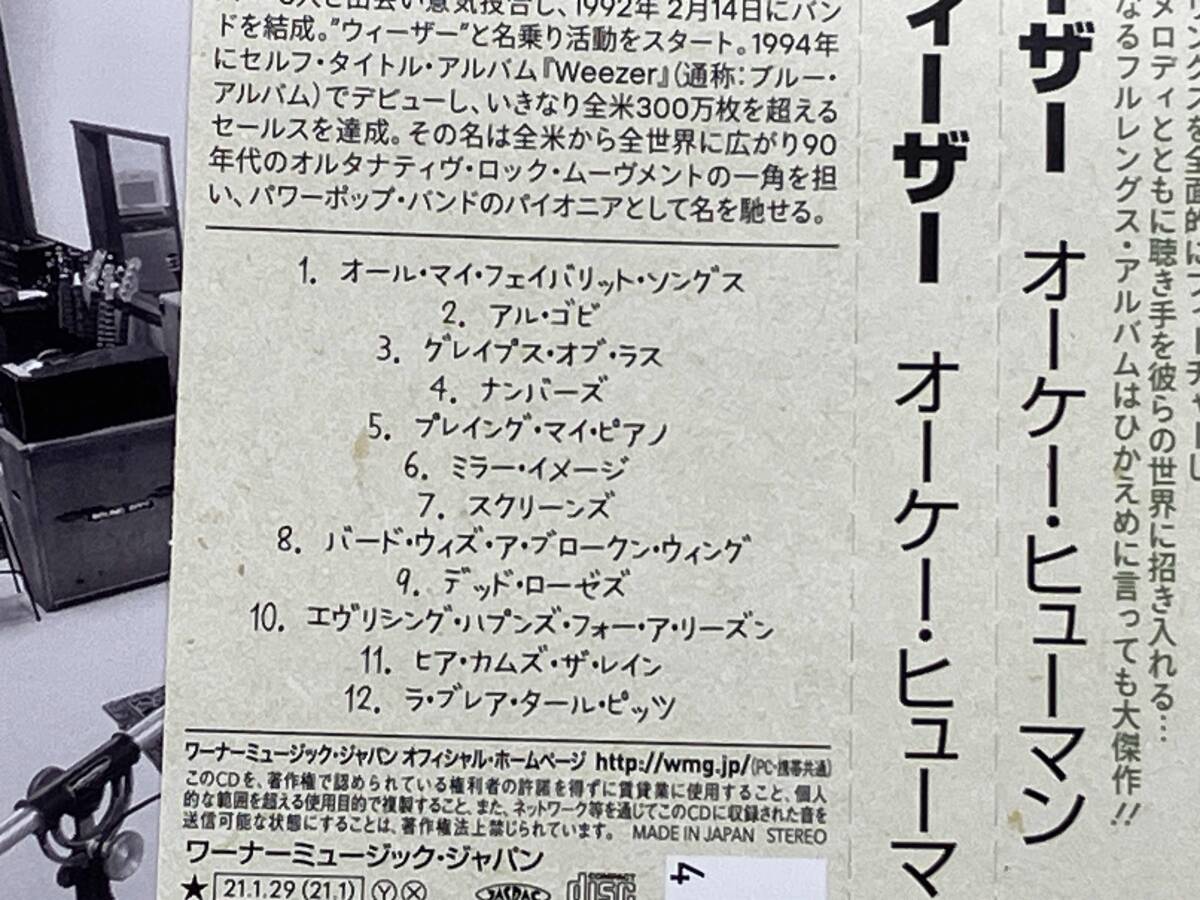 人と出会い意気投合し、1992年 2月14日にバン
ドを結成。"ウィーザー"と名乗り活動をスタート。1994年
にセルフ・タイトル・アルバム『Weezer』(通称:ブルー・
アルバム)でデビューし、いきなり全米300万枚を超える
セールスを達成。その名は全米から全世界に広がり90
年代のオルタナティヴ・ロック・ムーヴメントの一角を担
い、パワーポップ・バンドのパイオニアとして名を馳せる。
1. オール・マイ・フェイバリット・ソングス
2. アル・ゴビ
3. グレイプス・オブ・ラス
4. ナンバーズ
5. プレイング・マイ・ピアノ
6. ミラー・イメージ
7. スクリーンズ
8. バード・ウィズ・ア・ブロークン・ウィング
9. デッド・ローゼズ
10. エヴリシング・ハプンズ・フォー・ア・リーズン
11. ヒア・カムズ・ザ・レイン
12. ラ・ブレア・タール・ピッツ
ワーナーミュージック・ジャパン オフィシャル・ホームページ http://wmg.jp/(PC・携帯共通)
このCDを、著作権で認められている権利者の許諾を得ずに賃貸業に使用すること、個人
的な範囲を超える使用目的で複製すること、また、ネットワーク等を通じてこのCDに収録された音を
送信可能な状態にすることは、著作権法上禁じられています。 MADE IN JAPAN STEREO
ワーナーミュージック・ジャパン
★ 21.1.29 (21.1) Ⓨ Ⓧ JASRAC COMPACT disc
4
ィーザー オーケー・ヒューマ
ーザー オーケー・ヒューマン
なるフルレングス・アルバムはひかえめに言っても大傑作!!
メロディとともに聴き手を彼らの世界に招き入れる…